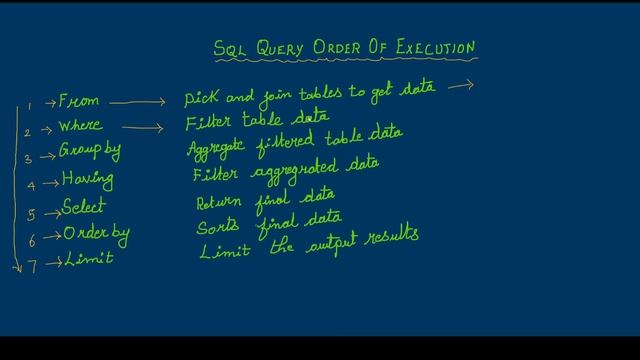 SQL QUERY ORDER OF EXECUTION
1 → From → Pick and join tables to get data →
2 → Where → Filter table data
3 → Group by Aggregate filtered table data
4 → Having Filter aggregrated data
5 → Select Return final data
6 → Order by Sorts final data
7 → Limit Limit the output results